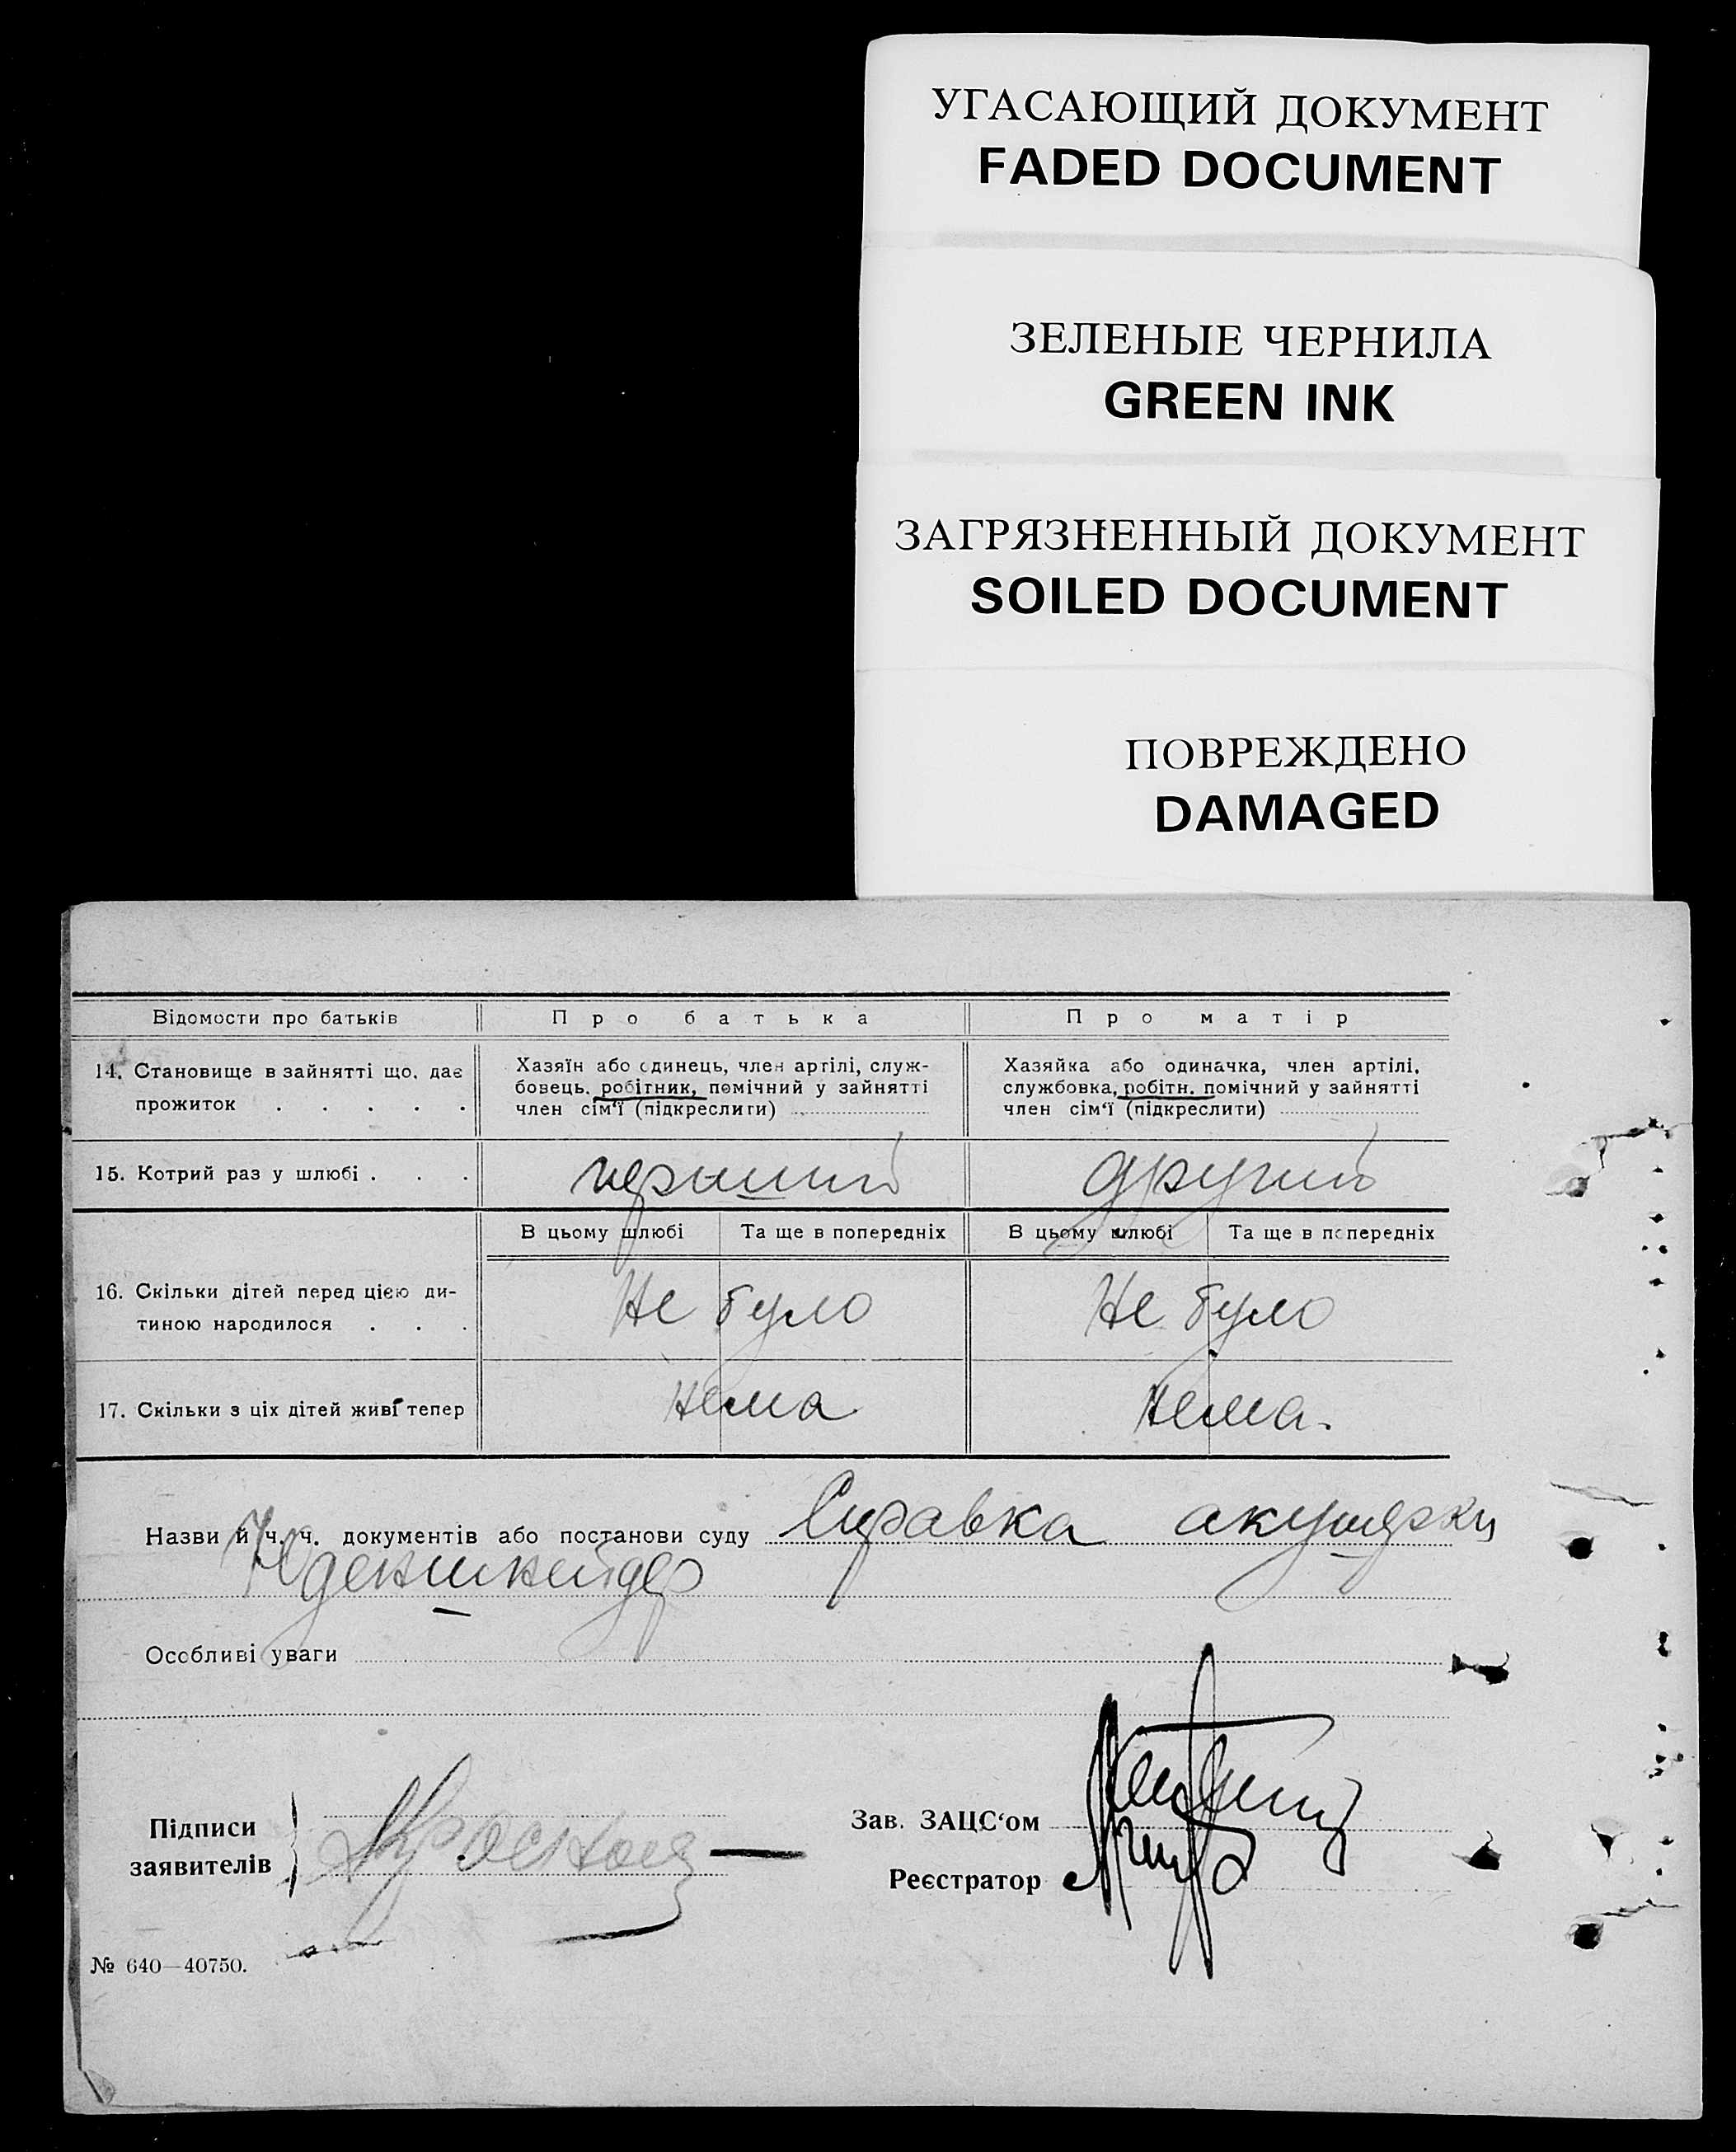 УГАСАЮЩИЙ ДОКУМЕНТ
FADED DOCUMENT
ЗЕЛЕНЫЕ ЧЕРНИЛА
GREEN INK
ЗАГРЯЗНЕННЫЙ ДОКУМЕНТ
SOILED DOCUMENT
ПОВРЕЖДЕНО
DAMAGED
Відомости про батьків Про батька Про матір
14. Становище в зайнятті що, дає
прожиток . . . . .
Хазяїн або одинець, член артілі, служ-
бовець, робітник, помічний у зайнятті
член сім'ї (підкреслити)
Хазяйка або одиначка, член артілі,
службовка, робітн. помічний у зайнятті
член сім'ї (підкреслити)
15. Котрий раз у шлюбі . . . перший другий
В цьому шлюбі Та ще в попередніх В цьому шлюбі Та ще в попередніх
16. Скільки дітей перед цією ди-
тиною народилося . . .
Не було Не було
17. Скільки з ціх дітей живі тепер Нема Нема.
Назви й ч. ч. документів або постанови суду Справка акушерки
Юденшнейдер
Особливі уваги
Підписи
заявителів
Зав. ЗАЦС'ом
Реєстратор
№ 640—40750.